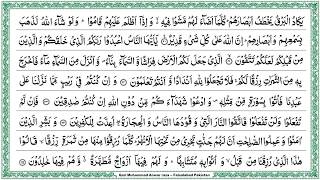 يَكَادُ الْبَرْقُ يَخْطَفُ اَبْصَارَهُمْ ؕ كُلَّمَاۤ اَضَآءَ لَهُمْ مَّشَوْا فِیْهِ ۙۗ وَ اِذَاۤ اَظْلَمَ عَلَیْهِمْ قَامُوْا ؕ وَ لَوْ شَآءَ اللّٰهُ لَذَهَبَ
بِسَمْعِهِمْ وَ اَبْصَارِهِمْ ؕ اِنَّ اللّٰهَ عَلٰی كُلِّ شَیْءٍ قَدِیْرٌ ۝ یٰۤاَیُّهَا النَّاسُ اعْبُدُوْا رَبَّكُمُ الَّذِیْ خَلَقَكُمْ وَ الَّذِیْنَ
مِنْ قَبْلِكُمْ لَعَلَّكُمْ تَتَّقُوْنَ ۝ الَّذِیْ جَعَلَ لَكُمُ الْاَرْضَ فِرَاشًا وَّ السَّمَآءَ بِنَآءً ۪ وَّ اَنْزَلَ مِنَ السَّمَآءِ مَآءً فَاَخْرَجَ
بِهٖ مِنَ الثَّمَرٰتِ رِزْقًا لَّكُمْ ۚ فَلَا تَجْعَلُوْا لِلّٰهِ اَنْدَادًا وَّ اَنْتُمْ تَعْلَمُوْنَ ۝ وَ اِنْ كُنْتُمْ فِیْ رَیْبٍ مِّمَّا نَزَّلْنَا عَلٰی
عَبْدِنَا فَاْتُوْا بِسُوْرَةٍ مِّنْ مِّثْلِهٖ ۪ وَ ادْعُوْا شُهَدَآءَكُمْ مِّنْ دُوْنِ اللّٰهِ اِنْ كُنْتُمْ صٰدِقِیْنَ ۝ فَاِنْ لَّمْ
تَفْعَلُوْا وَ لَنْ تَفْعَلُوْا فَاتَّقُوا النَّارَ الَّتِیْ وَقُوْدُهَا النَّاسُ وَ الْحِجَارَةُ ۖۚ اُعِدَّتْ لِلْكٰفِرِیْنَ ۝ وَ بَشِّرِ الَّذِیْنَ
اٰمَنُوْا وَ عَمِلُوا الصّٰلِحٰتِ اَنَّ لَهُمْ جَنّٰتٍ تَجْرِیْ مِنْ تَحْتِهَا الْاَنْهٰرُ ؕ كُلَّمَا رُزِقُوْا مِنْهَا مِنْ ثَمَرَةٍ رِّزْقًا ۙ قَالُوْا
هٰذَا الَّذِیْ رُزِقْنَا مِنْ قَبْلُ ۙ وَ اُتُوْا بِهٖ مُتَشَابِهًا ؕ وَ لَهُمْ فِیْهَاۤ اَزْوَاجٌ مُّطَهَّرَةٌ ۙۗ وَّ هُمْ فِیْهَا خٰلِدُوْنَ ۝
Qari Muhammad - Faisalabad Pakistan